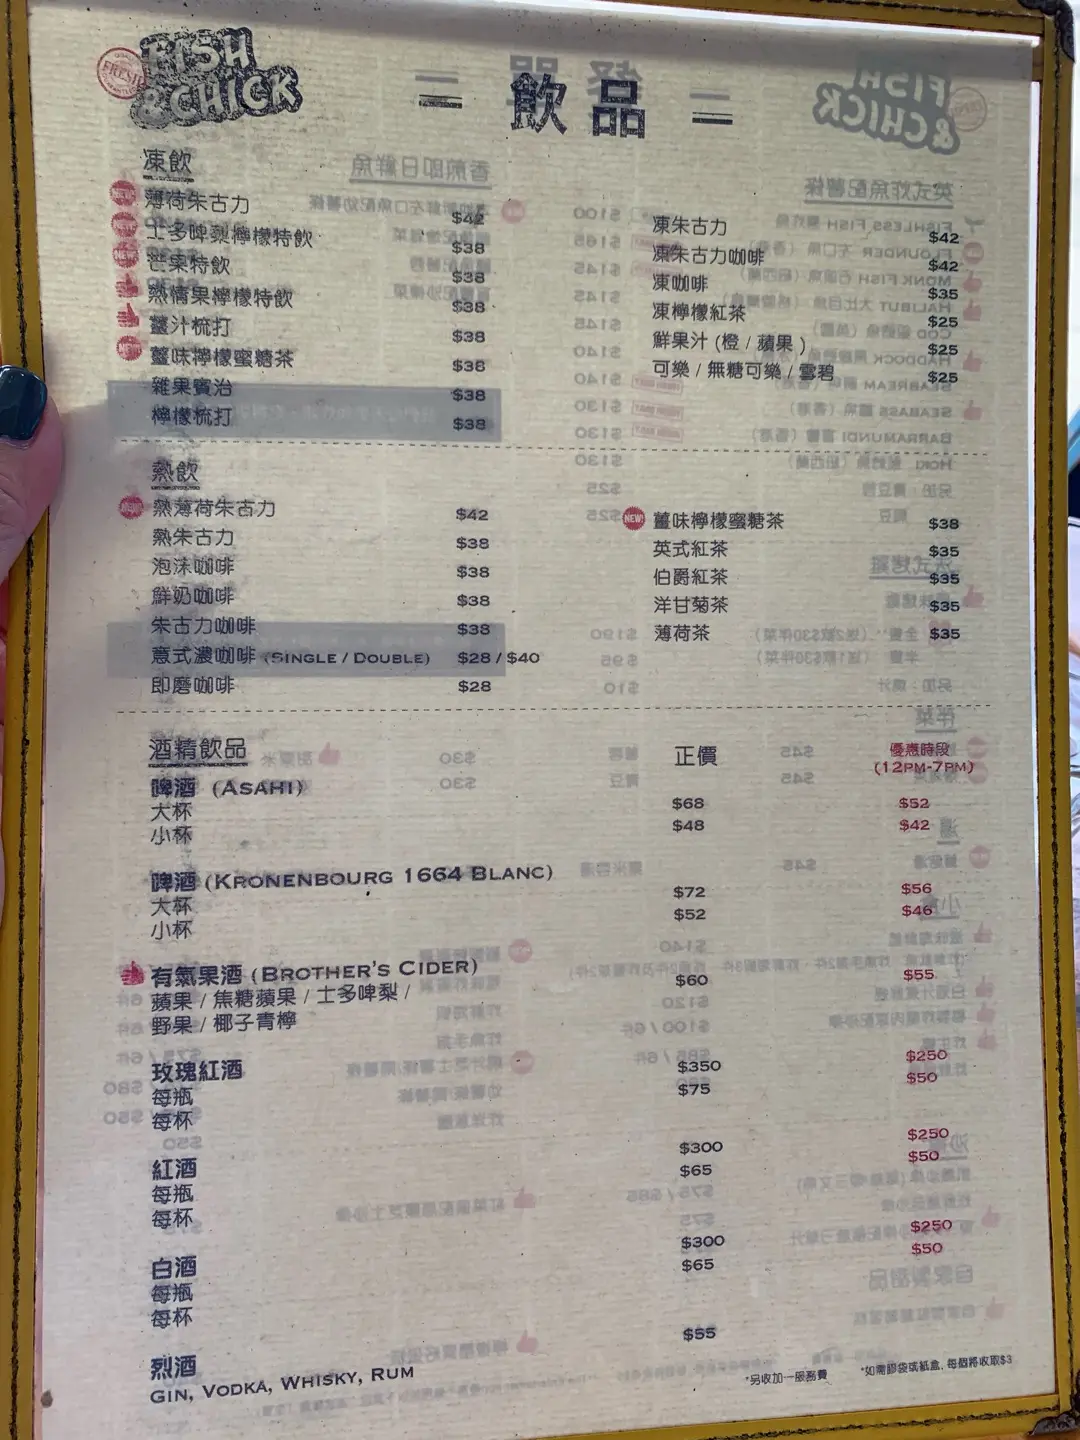 FRESH
FISH
&CHICK
飲品
凍飲
NEW!
薄荷朱古力 $42
士多啤梨檸檬特飲 $38
芒果特飲 $38
熱情果檸檬特飲 $38
薑汁梳打 $38
薑味檸檬蜜糖茶 $38
雜果賓治 $38
檸檬梳打 $38
凍朱古力 $42
凍朱古力咖啡 $42
凍咖啡 $35
凍檸檬紅茶 $25
鮮果汁 (橙 / 蘋果 ) $25
可樂 / 無糖可樂 / 雪碧 $25
熱飲
熱薄荷朱古力 $42
熱朱古力 $38
泡沫咖啡 $38
鮮奶咖啡 $38
朱古力咖啡 $38
意式濃咖啡 (SINGLE / DOUBLE) $28 / $40
即磨咖啡 $28
NEW! 薑味檸檬蜜糖茶 $38
英式紅茶 $35
伯爵紅茶 $35
洋甘菊茶 $35
薄荷茶 $35
酒精飲品 正價 優惠時段
(12PM-7PM)
啤酒 (ASAHI)
大杯 $68 $52
小杯 $48 $42
啤酒 (KRONENBOURG 1664 BLANC)
大杯 $72 $56
小杯 $52 $46
有氣果酒 (BROTHER'S CIDER) $60 $55
蘋果 / 焦糖蘋果 / 士多啤梨 /
野果 / 椰子青檸
玫瑰紅酒
每瓶 $350 $250
每杯 $75 $50
紅酒
每瓶 $300 $250
每杯 $65 $50
白酒
每瓶 $300 $250
每杯 $65 $50
烈酒 $55
GIN, VODKA, WHISKY, RUM
*另收加一服務費
*如需膠袋或紙盒, 每個將收取$3